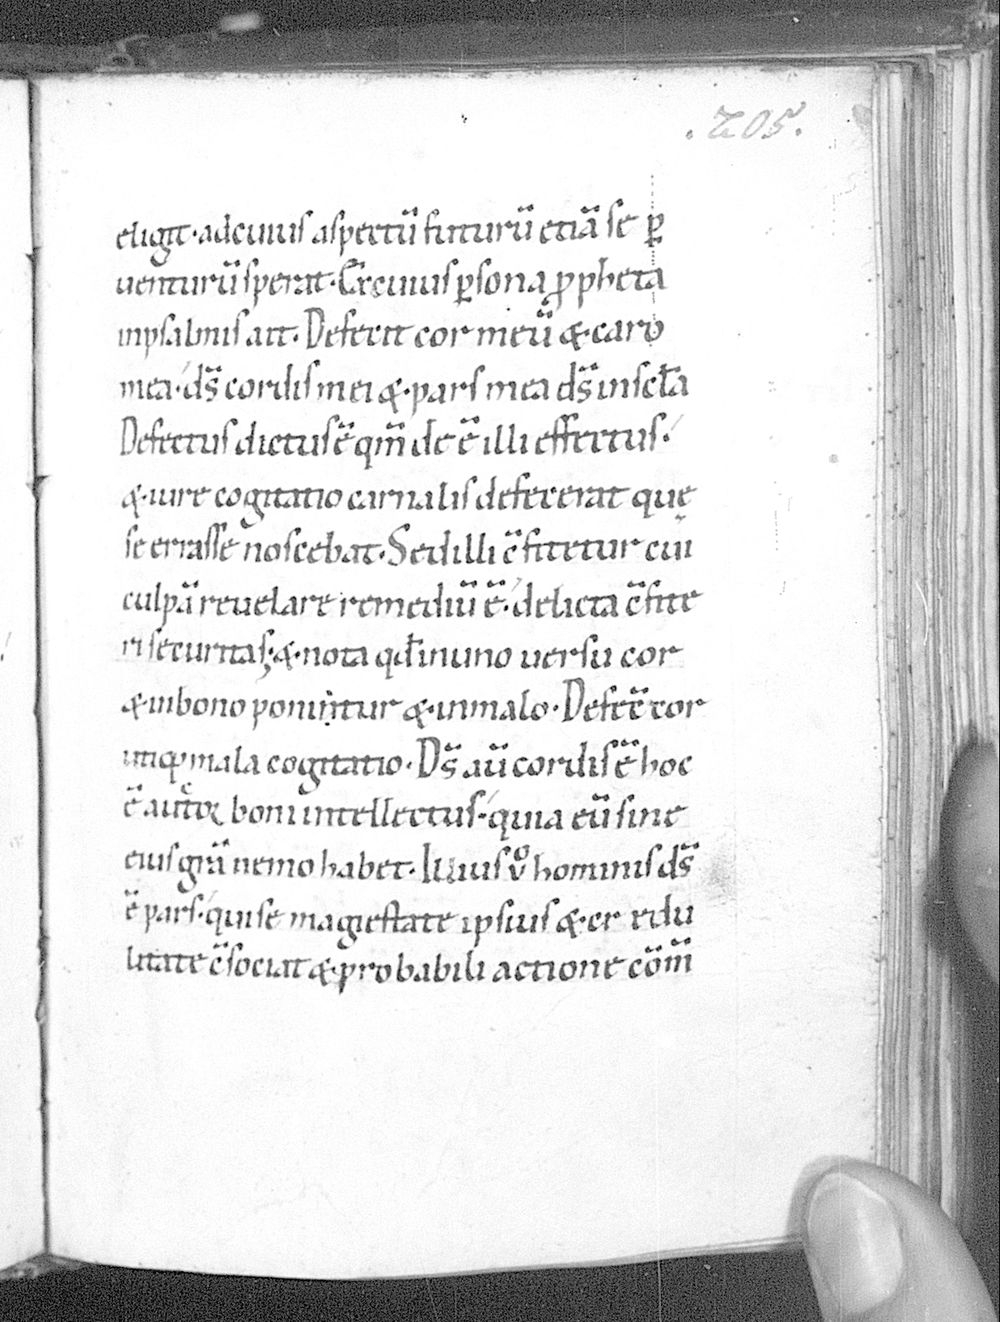 .205.
eligit·adcuius aspectū futurū etiā se ꝑ
uenturū sperat·Ex cuius ꝑsona ꝓpheta
inpsalmis ait·Defecit cor meū &·caro
mea·ds̄ cordis mei &·pars mea ds̄ insc̄la
Defectus dictus ē qm̄ de ē illi effectus·
&·iure cogitatio carnalis defecerat quę
se errasse noscebat·Sed illi c̄fitetur cui
culpā reuelare remediū ē·delicta c̄fite
ri securitas;&·nota qđ inuno uersu cor
&·inbono ponuntur &·inmalo·Defec̄ cor
utiq; mala cogitatio·Ds̄ aū cordis ē hoc
ē auctor boni intellectus·quia eū sine
eius grā nemo habet·Iꝉꝉius v̊ hominis ds̄
ē pars·qui se magiestate ipsius &·cr edu
litate c̄sociat &·probabili actione cōm̄